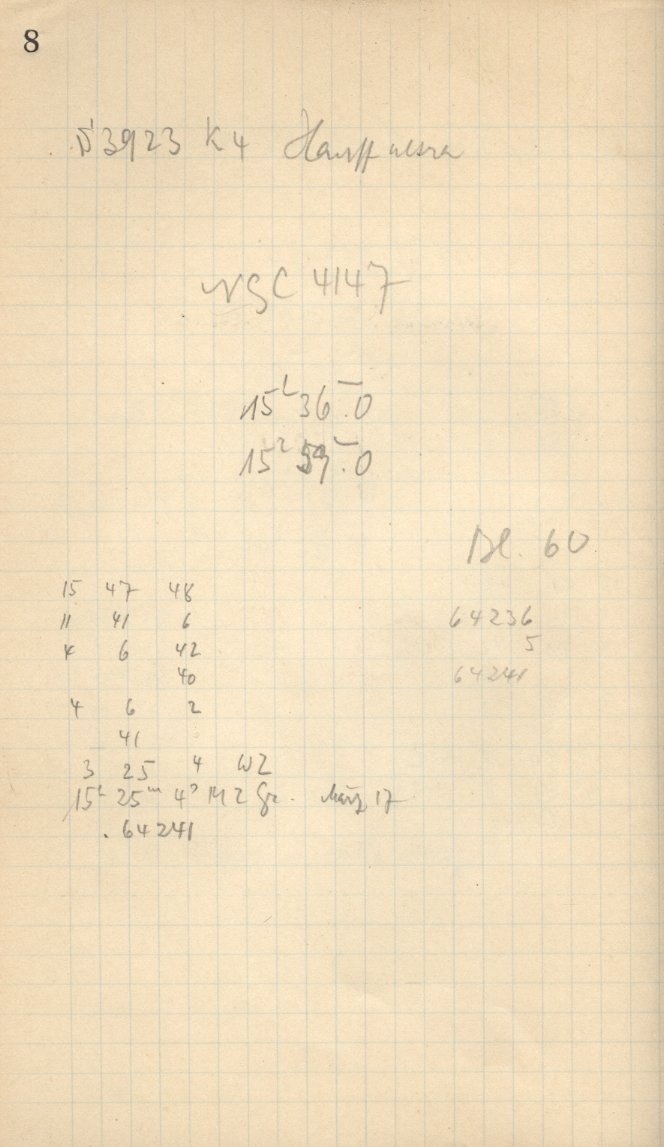 8
S 3923 K4
NGC 4147
15h 36m.0
15h 59m.0
Bl. 60
15 47 48
11 41 6
4 6 42
40
4 6 2
41
3 25 4 WZ
15h 25m 4s MZ Gr. März 17
.64241
64236
5
64241